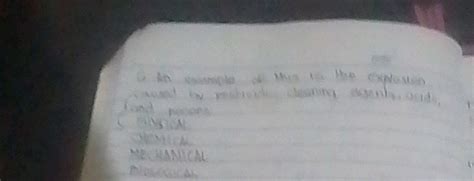 An example of this is the explosion
caused by pesticide, cleaning agents, acids,
and poisons
PHYSICAL
CHEMICAL
MECHANICAL
BIOLOGICAL